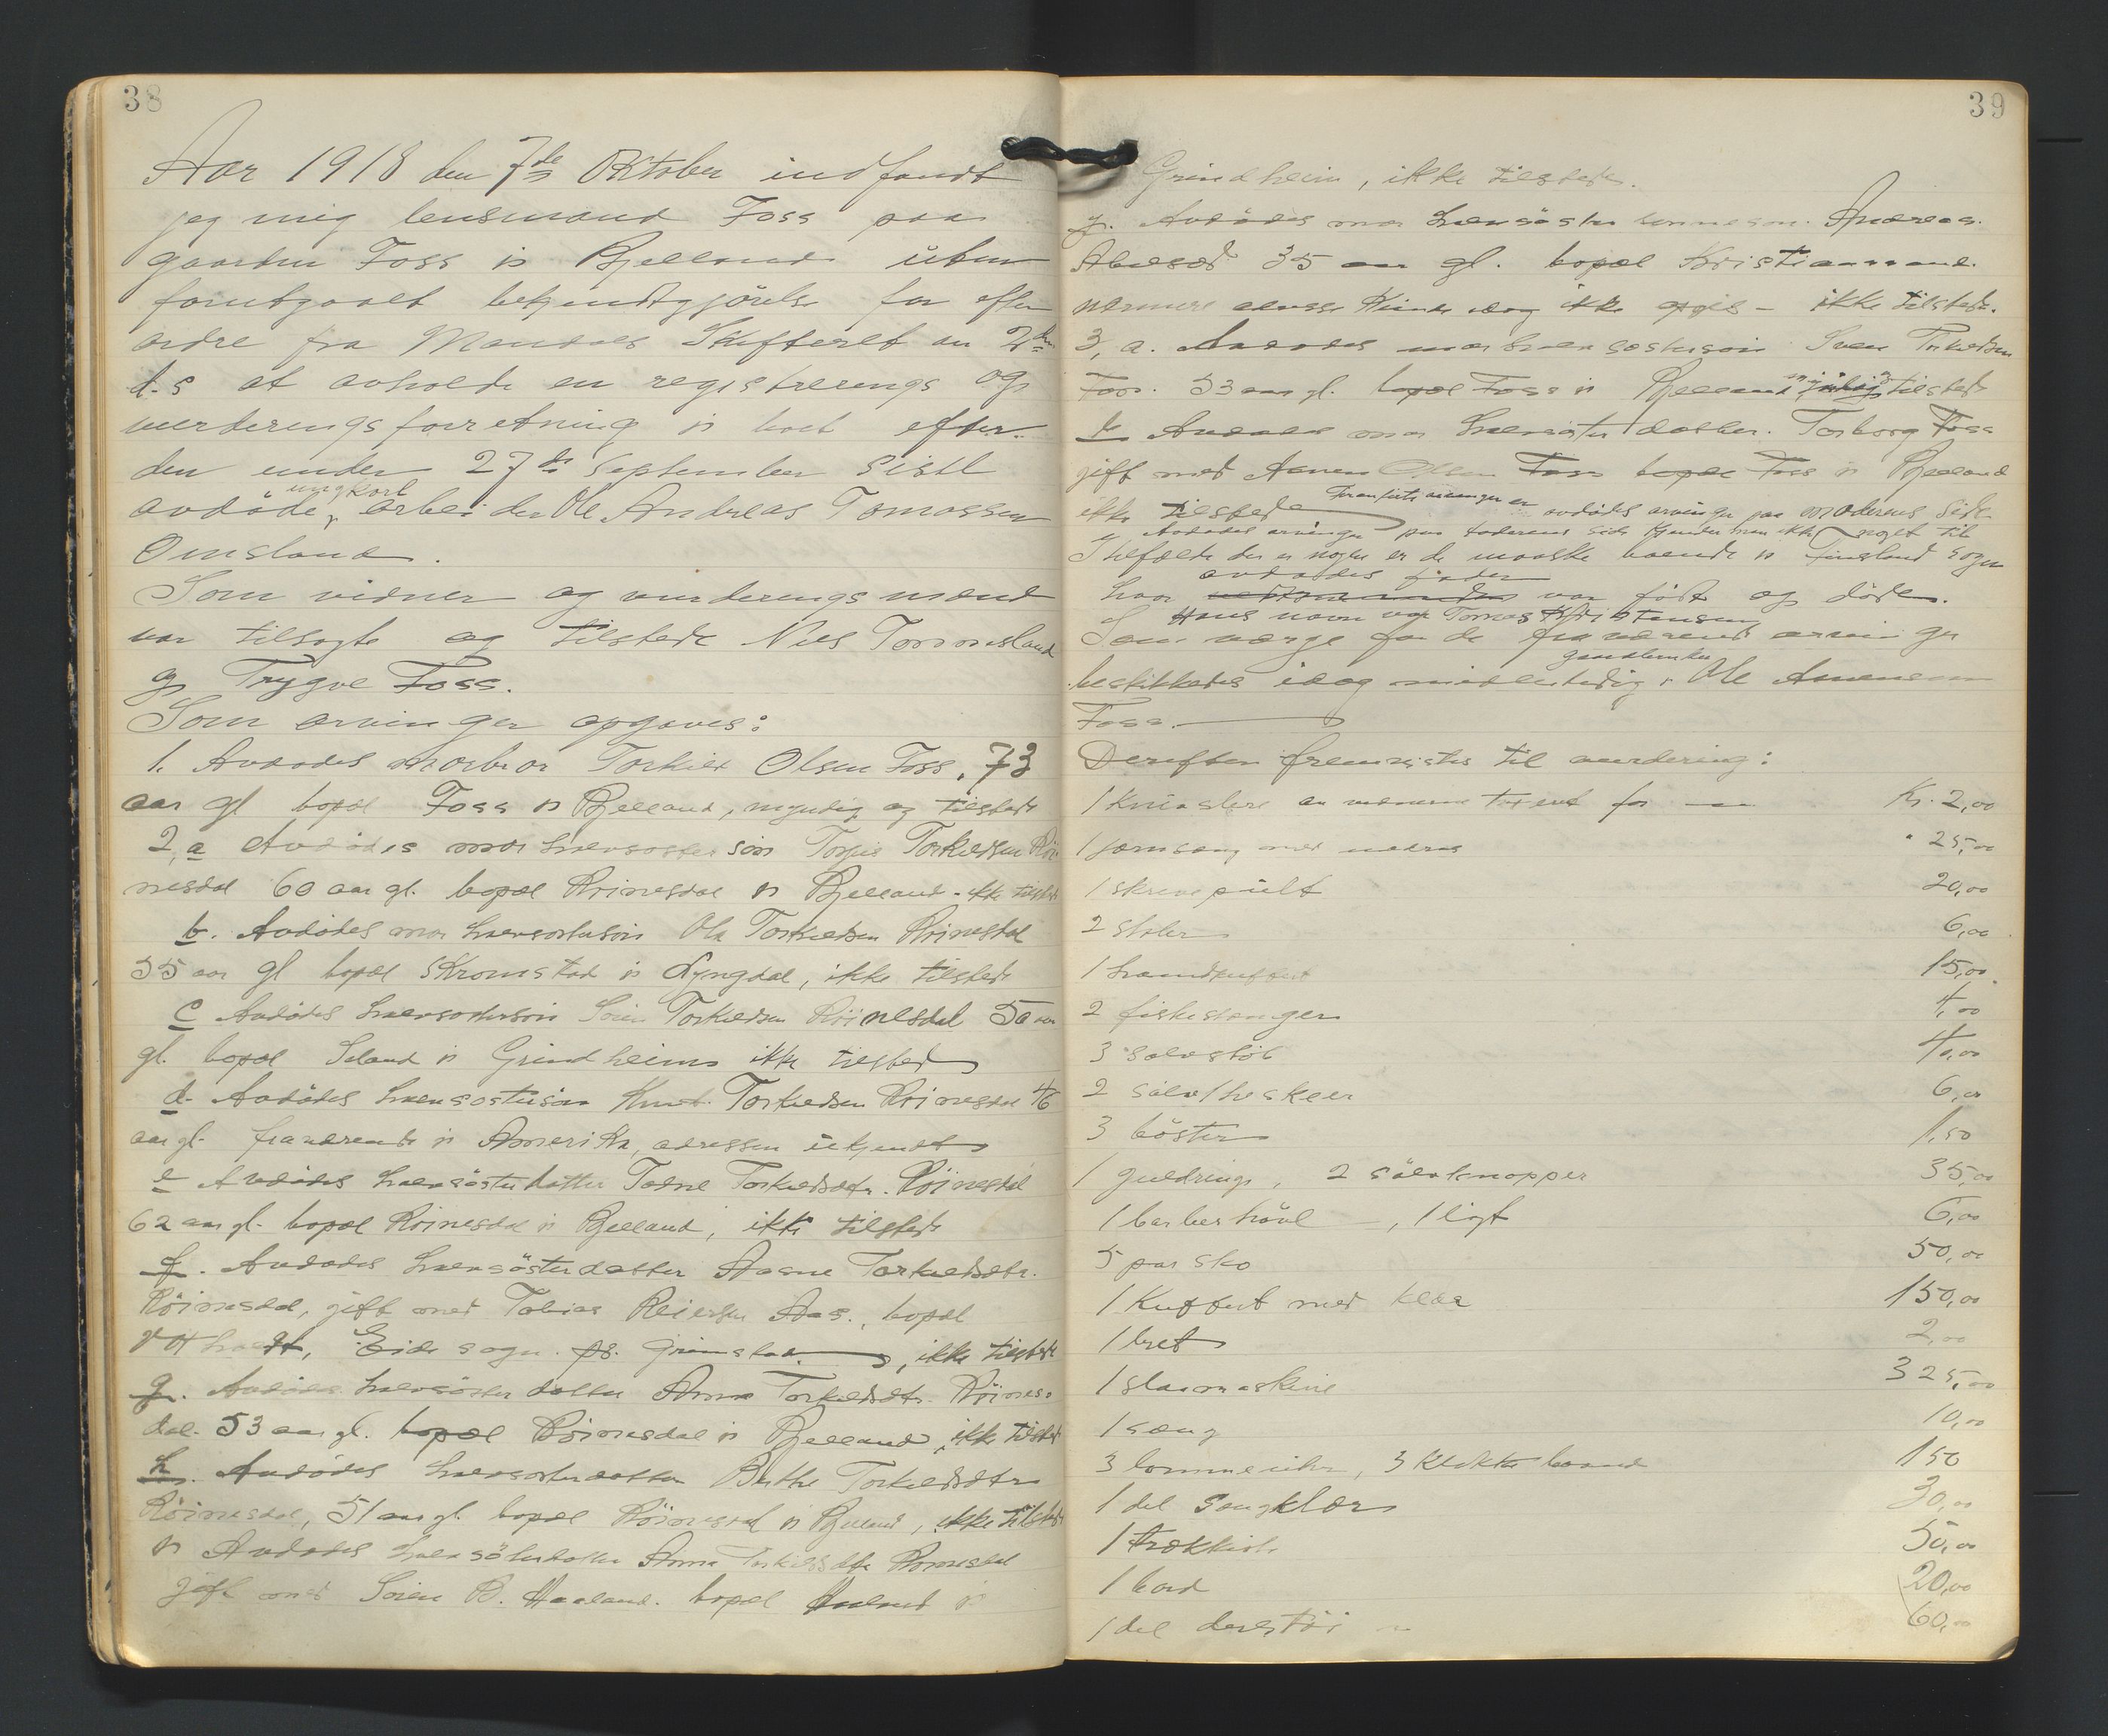 38
Aar 1918 den 7de Oktober indfandt
jeg mig lensmand Foss paa
gaarden Foss i Bjelland uten
forutgaaet bekjendtgjörelse for efter
ordre fra Mandals Skifteret av 2den
d.s at avholde en registrerings og
vurderingsforretning i boet efter
den under 27de September sistl
avdöde ungkarl arbeider Ole Andreas Tomassen
Omsland.
Som vidner og vurderingsmænd
var tilsagte og tilstede Nils Tommesland
og Trygve Foss.
Som arvinger opgaves:
1. Avdödes morbror Torkild Olsen Foss, 73
aar gl bopæl Foss i Bjelland, myndig og tilstede
2, a Avdödes mors halvsöstersön Torjus Torkildsen Röi-
nesdal 60 aar gl. bopæl Röinesdal i Bjelland - ikke tilstede
b. Avdödes mors halvsöstersön Ole Torkildsen Röinesdal
55 aar gl bopæl Skromstad i Lyngdal, ikke tilstede
c Avdödes halvsöstersön Sören Torkildsen Röinesdal 50 aar
gl. bopæl Seland i Grindheim ikke tilstede
d. Avdödes halvsöstersön Knut Torkildsen Röinesdal 46
aar gl. fraværende i Amerika, adressen ukjendt
e Avdödes halvsösterdatter Torkildsdtr. Röinesdal
62 aar gl. bopæl Röinesdal i Bjelland, ikke tilstede
f. Avdödes halvsösterdatter Aasne Torkildsdtr.
Röinesdal, gift med Tobias Reiersen Aas., bopæl
Eide sogn. ps. Grimstad, ikke tilstede
g. Avdödes halvsösterdatter Anna Torkildsdtr. Röines-
dal. 53 aar gl. bopæl Röinesdal i Bjelland, ikke tilstede
h. Avdödes halvsösterdatter Berthe Torkildsdtr
Röinesdal, 51 aar gl. bopæl Röinesdal i Bjelland, ikke tilstede
i Avdödes halvsösterdatter Anna Torkildsdtr Röinesdal
gift med Sören B. Haaland. bopæl Haaland i
39
Grindheim, ikke tilstede.
j. Avdödes mors halvsösters sönnesön. Andreas
35 aar gl. bopæl Kristianssand.
nærmere adresse kunde idag ikke opgis - ikke tilstede.
3, a. Avdödes mors halvsöstersön Sven Torkildsen
Foss. 53 aar gl. bopæl Foss i Bjelland, myndig tilstede
b Avdödes mors halvsöster datter. Torborg Foss
gift med Aanen Olsen Foss bopæl Foss i Bjelland
ikke tilstede Foranförte arvinger er avdödes arvinger paa moderens side
Avdödes arvinger paa faderens side kjender man ikke noget til
I tilfælde der er nogen er de maaske boende i Finsland sogn
hvor avdödes fader var födt og döde.
Hans navn var Tomas Kristensen
Som værge for de fraværende arvinger
beskikkedes idag midlertidig gaardbruker Ole Aanensen
Foss.
Derefter fremvistes til vurdering:
1 av mændene taxert for Kr. 2,00
1 jernseng med madras " 25,00
1 skrivepult 20,00
2 stoler 6,00
1 haandkuffert 15,00
2 fiskestænger 4,00
3 40,00
2 sölvtheskeer 6,00
3 böster 1,50
1 guldring, 2 sölvknapper 35,00
1 barberhövl, 1 ligt 6,00
5 par sko 50,00
1 Kuffert med klær 150,00
1 bret 2,00
1 slaamaskine 325,00
1 seng 10,00
3 lommeuhr, 3 klokkebaand 150
1 del sengklær 30,00
1 trækkiste 50,00
1 bord 20,00
1 del 60,00